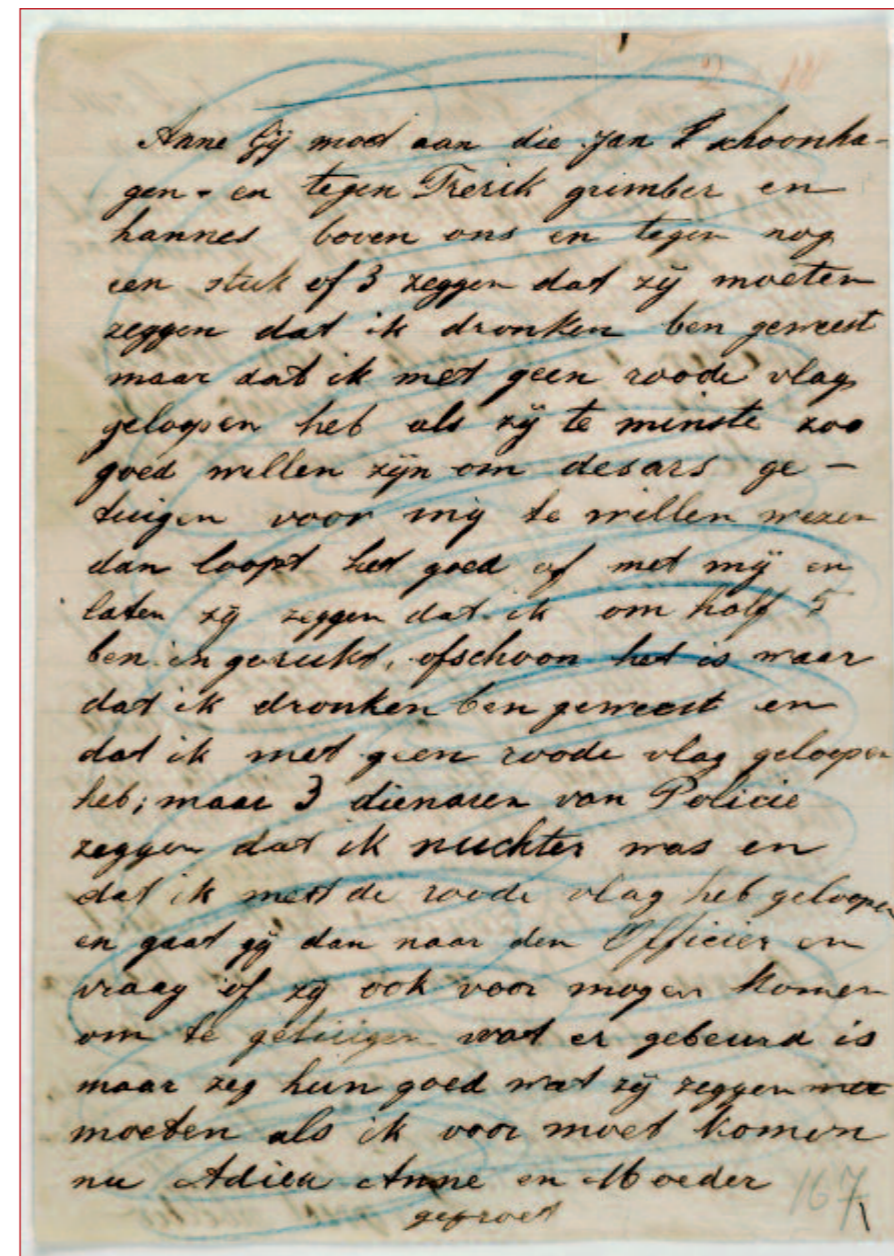 2 18
Anne Gij moet aan die Jan schoonha-
gen - en tegen Frerik grimber en
hannes boven ons en tegen nog
een stuk of 3 zeggen dat zij moeten
zeggen dat ik dronken ben geweest
maar dat ik met geen roode vlag
geloopen heb als zij te minste zoo
goed willen zijn om desars ge-
tuigen voor mij te willen wezen
dan loopt het goed af met mij en
laten zij zeggen dat ik om half 5
ben in gerukt, ofschoon het is waar
dat ik dronken ben geweest en
dat ik met geen roode vlag geloopen
heb; maar 3 dienaren van Policie
zeggen dat ik nuchter was en
dat ik met de roode vlag heb geloopen
en gaat gij dan naar den Officier en
vraag of zij ook voor mogen komen
om te getuigen wat er gebeurd is
maar zeg hun goed wat zij zeggen
moeten als ik voor moet komen
nu Adieu Anne en Moeder
gegroet
167